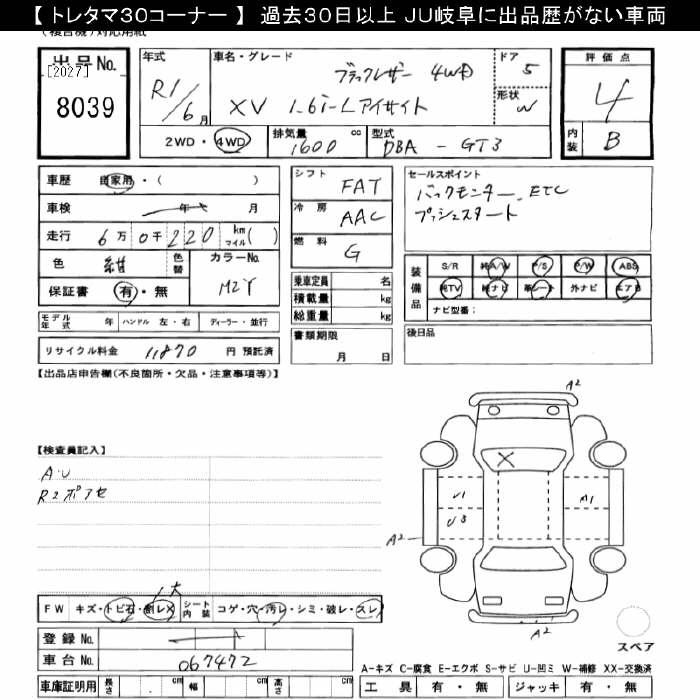 【 トレタマ30コーナー 】 過去30日以上 JU岐阜に出品歴がない車両
(複合機)対応用紙
出品No. [2027] 8039
年式 R1/6月
車名・グレード ブラックレザー 4WD
XV 1.6i-L アイサイト
ドア 5
形状 W
2WD・4WD
排気量 1600 cc
型式 DBA - GT3
評価点 4
内装 B
車歴 自家用・( )
車検 年 月
走行 6万0千220 km マイル( )
色 紺 色替
カラーNo. M2Y
保証書 有・無
モデル年式 年 ハンドル 左・右 ディーラー・並行
リサイクル料金 11870 円 預託済
シフト FAT
冷房 AAC
燃料 G
乗車定員 名
積載量 kg
総重量 kg
書類期限 月 日
セールスポイント
バックモニター、ETC
プッシュスタート
装備品
S/R 純A/W P/S P/W ABS
純TV 純ナビ 革シート 外ナビ エアB
ナビ型番:
後日品
【出品店申告欄(不良箇所・欠品・注意事項等)】
【検査員記入】
A・U
A2
X
U1
U3
A1
A2
A2
FW キズ・トビ石・割レX 大
シート内装 コゲ・穴・汚レ・シミ・破レ・スレ
登録No.
車台No. 067472
車庫証明用 長さ cm 幅 cm 高さ cm
スペア
A-キズ C-腐食 E-エクボ S-サビ U-凹ミ W-補修 XX-交換済
工具 有・無 ジャッキ 有・無